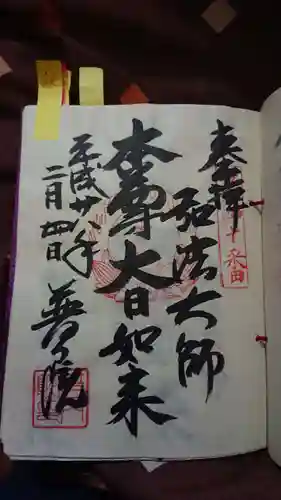 奉拝
弘法大師
本尊大日如来
平成廿八年
二月四日
普門院